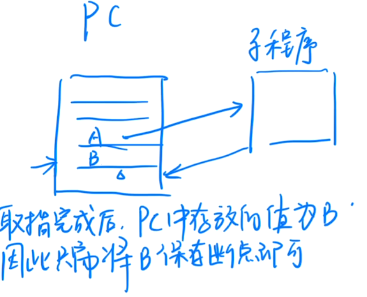 PC
子程序
A
B
取指完成后，PC中存放的值为B.
因此只需将B保存断点即可